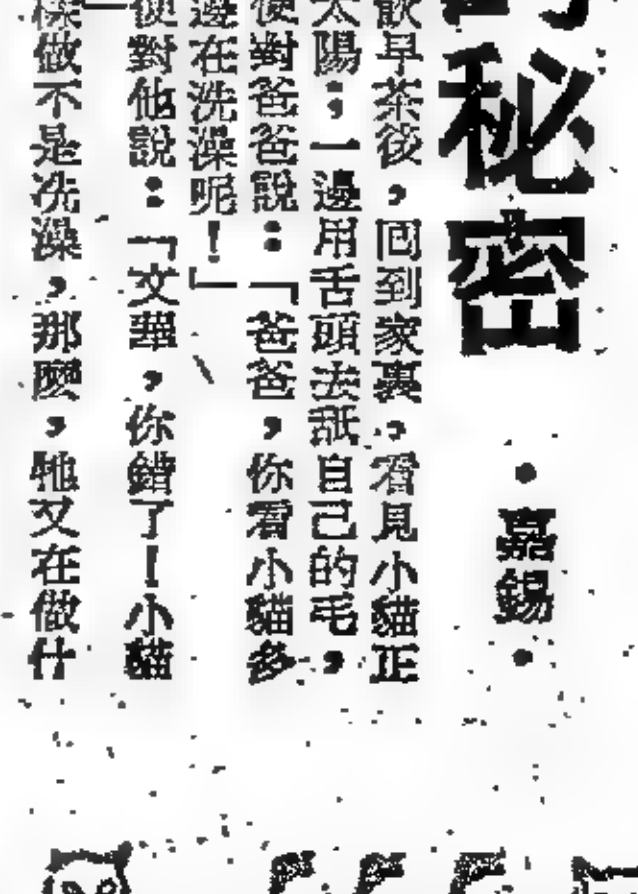 秘密
•嘉錫•
飲早茶後，回到家裏，看見小貓正
太陽；一邊用舌頭去舐自己的毛，
便對爸爸說：「爸爸，你看小貓多
邊在洗澡呢！」
便對他說：「文華，你錯了！小貓
樣做不是洗澡，那麼，牠又在做什